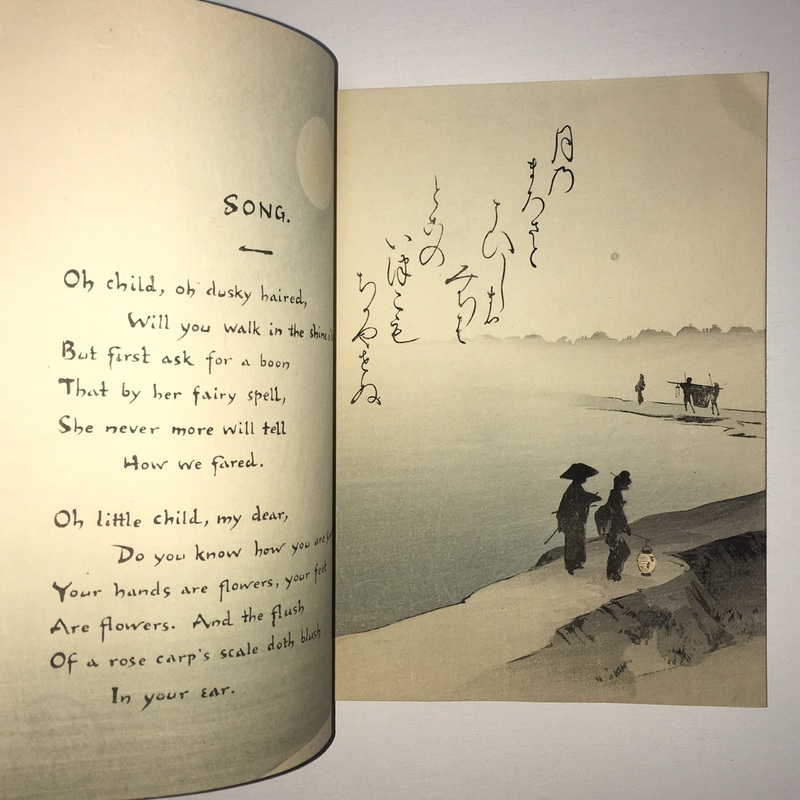 SONG.
Oh child, oh dusky haired,
Will you walk in the
But first ask for a boon
That by her fairy spell,
She never more will tell
How we fared.
Oh little child, my dear,
Do you know how you are
Your hands are flowers, your feet
Are flowers. And the flush
Of a rose carp's scale doth blush
In your ear.
月乃
まろさと
こひし
みち
とこの
いつこも
ちかやせぬ